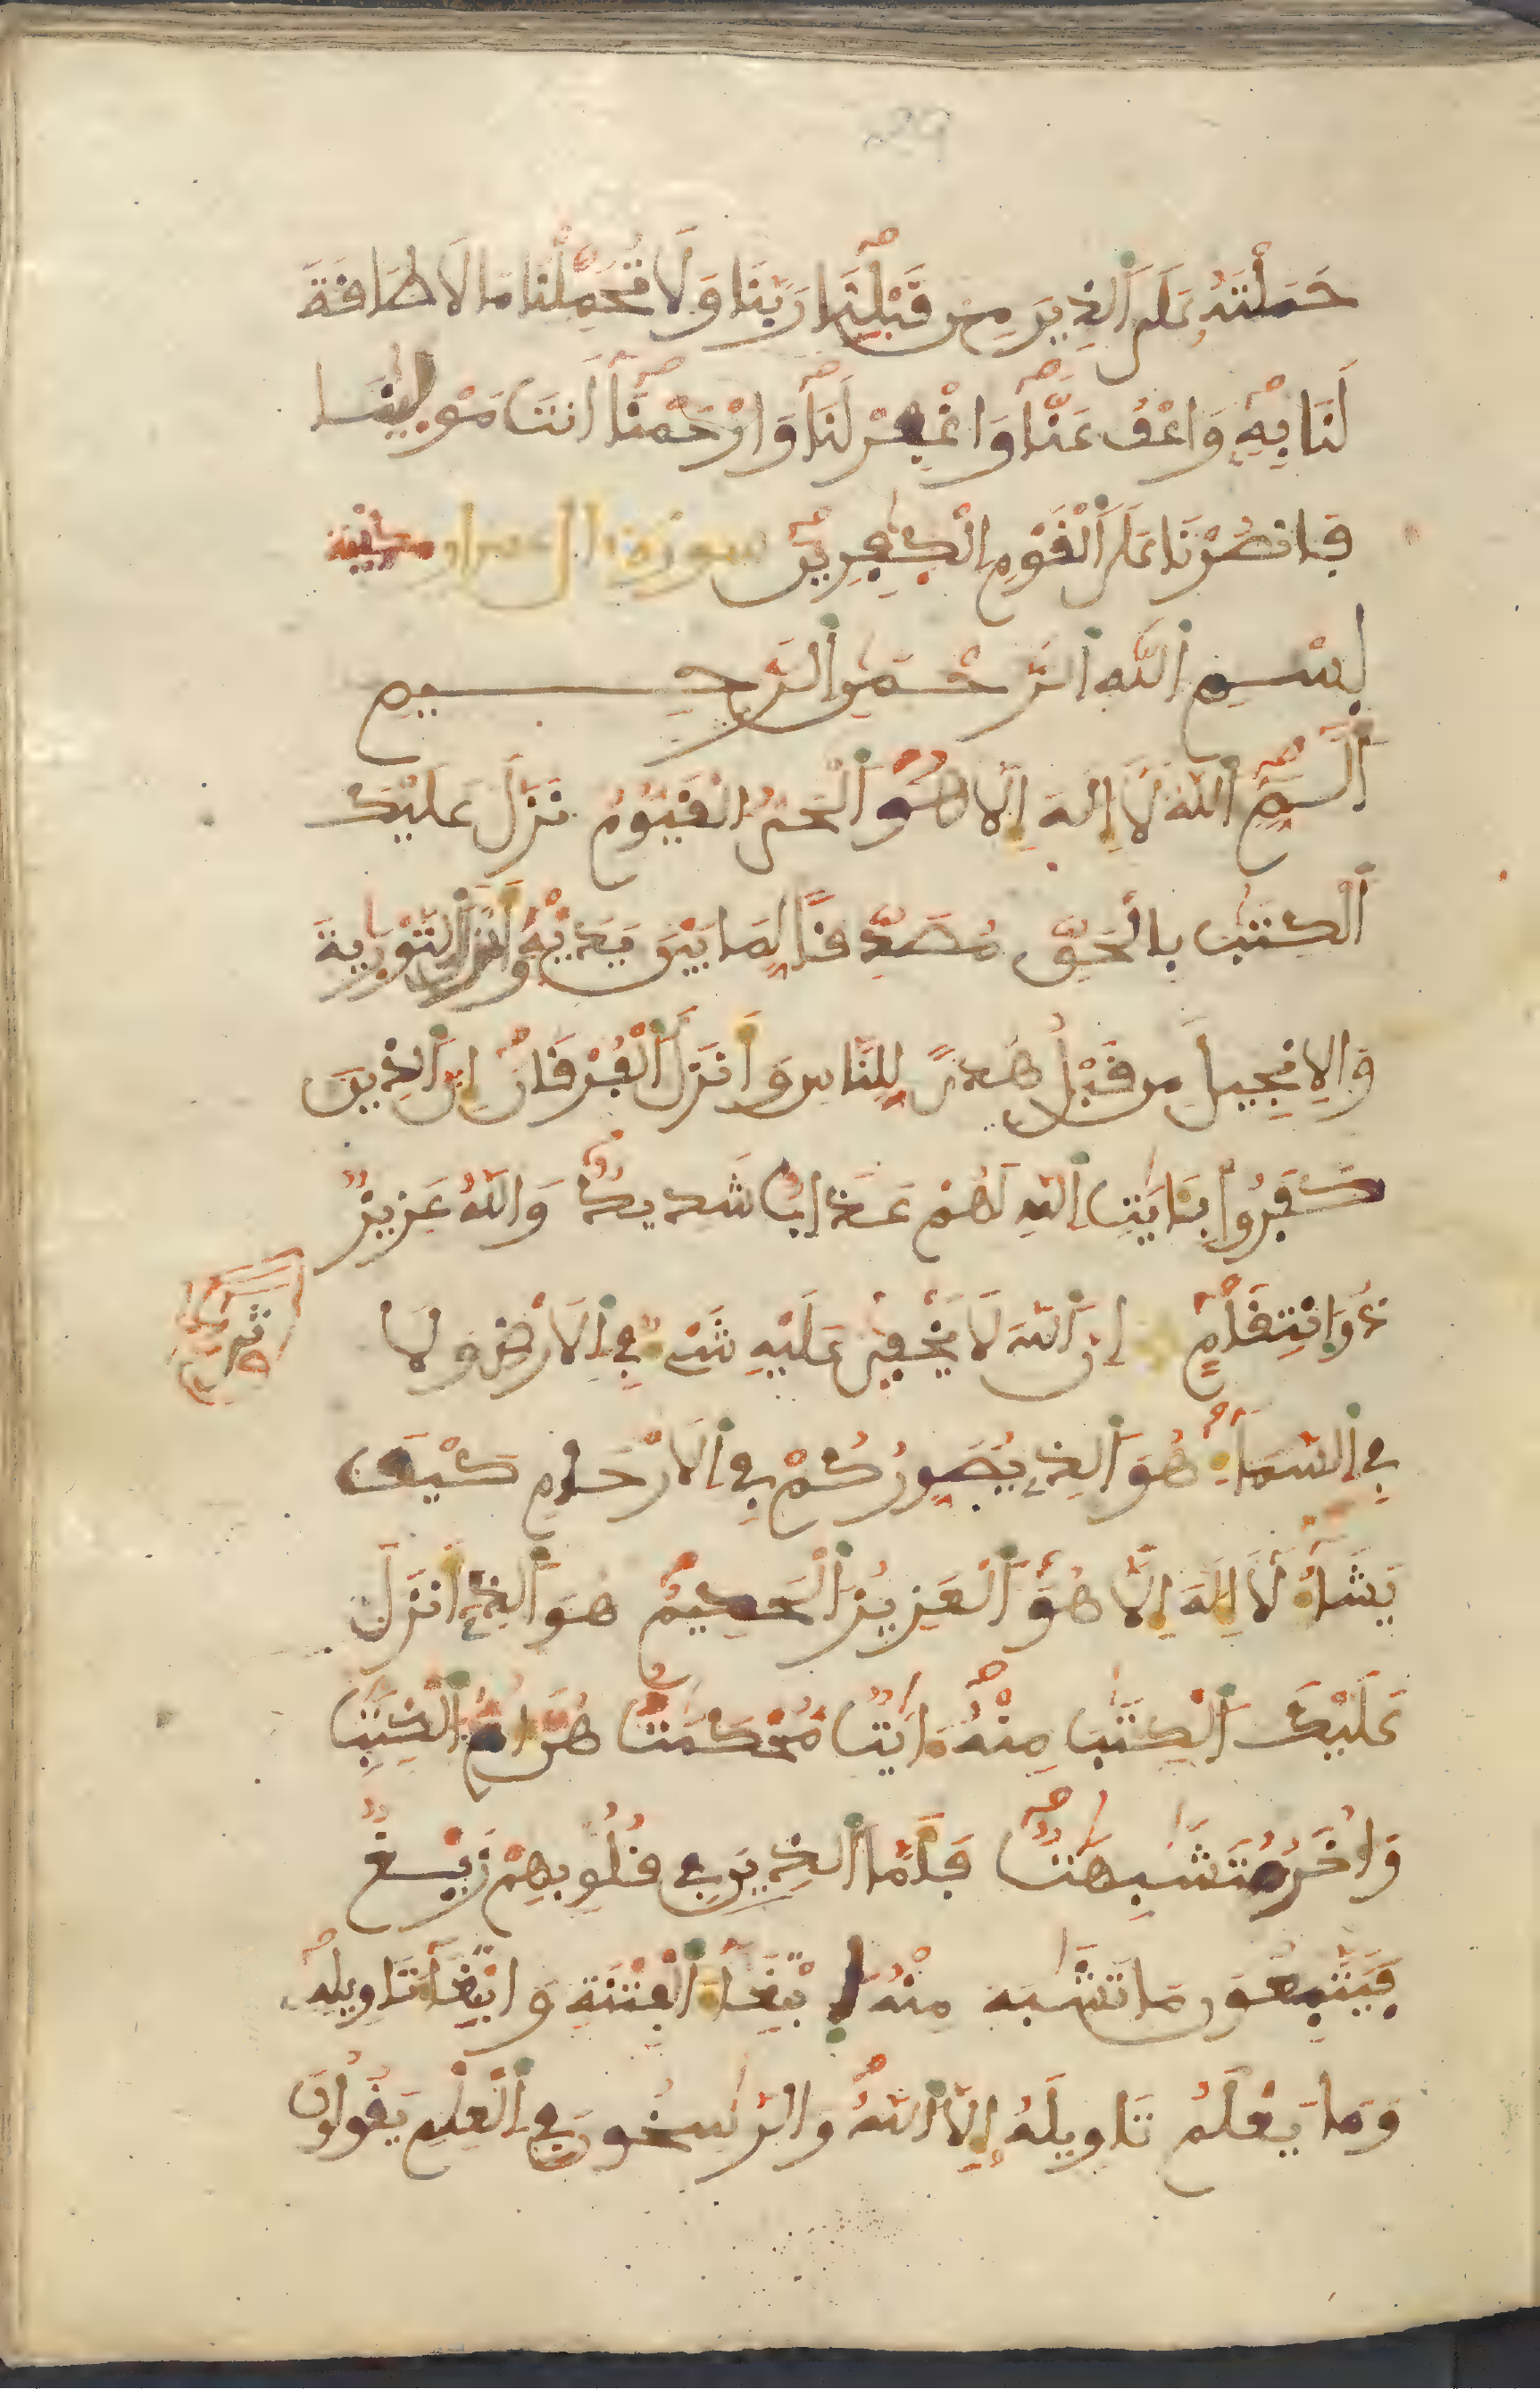 حَمَلْتَهُ عَلَى ٱلذِينَ مِن قَبْلِنَا رَبَّنَا وَلَا تُحَمِّلْنَا مَا لَا طَافَةَ
لَنَا بِهِ وَاعْفُ عَنَّا وَاغْفِرْ لَنَا وَارْحَمْنَا أَنتَ مَوْلِينَا
فَانصُرْنَا عَلَى ٱلْقَوْمِ اِلْكٰفِرِينَ سورة ال عمران مدنية
بِسْمِ اِللَّهِ اِلرَّحْمَٰنِ اِلرَّحِيمِ
أَلَمِّ اَللَّهُ لَا إِلَهَ إِلَّا هُوَ اَلْحَىُّ اُلْقَيُّومُ نَزَّلَ عَلَيْكَ
اَلْكِتٰبَ بِالْحَقِّ مُصَدِّقًا لِّمَا بَيْنَ يَدَيْهِ وَأَنزَلَ اَلتَّوْرٰيةَ
وَالِانجِيلَ مِن قَبْلُ هُدىً لِّلنَّاسِ وَأَنزَلَ اَلْفُرْقَانَ إِنَّ اَلذِينَ
كَفَرُوا بِـَٔايَٰتِ اِللَّهِ لَهُمْ عَذَابٌ شَدِيدٌ وَاللَّهُ عَزِيزٌ
ذُو اُنتِقَامٍ إِنَّ اَللَّهَ لَا يَخْفىٰ عَلَيْهِ شَىْءٌ فِى اِلَارْضِ وَلَا
فِى اِلسَّمَاءِ هُوَ اَلذِى يُصَوِّرُكُمْ فِى اِلَارْحَامِ كَيْفَ
يَشَاءُ لَا إِلَهَ إِلَّا هُوَ اَلْعَزِيزُ اُلْحَكِيمُ هُوَ اَلذِى أَنزَلَ
عَلَيْكَ اَلْكِتَٰبَ مِنْهُ ءَايَٰتٌ مُّحْكَمَٰتٌ هُنَّ أُمُّ اُلْكِتَٰبِ
وَأُخَرُ مُتَشَٰبِهَٰتٌ فَأَمَّا اَلذِينَ فِى قُلُوبِهِمْ زَيْغٌ
فَيَتَّبِعُونَ مَا تَشَٰبَهَ مِنْهُ اُبْتِغَاءَ اَلْفِتْنَةِ وَابْتِغَاءَ تَاوِيلِهِ
وَمَا يَعْلَمُ تَاوِيلَهُ إِلَّا اَللَّهُ وَالرَّٰسِخُونَ فِى اِلْعِلْمِ يَقُولُونَ